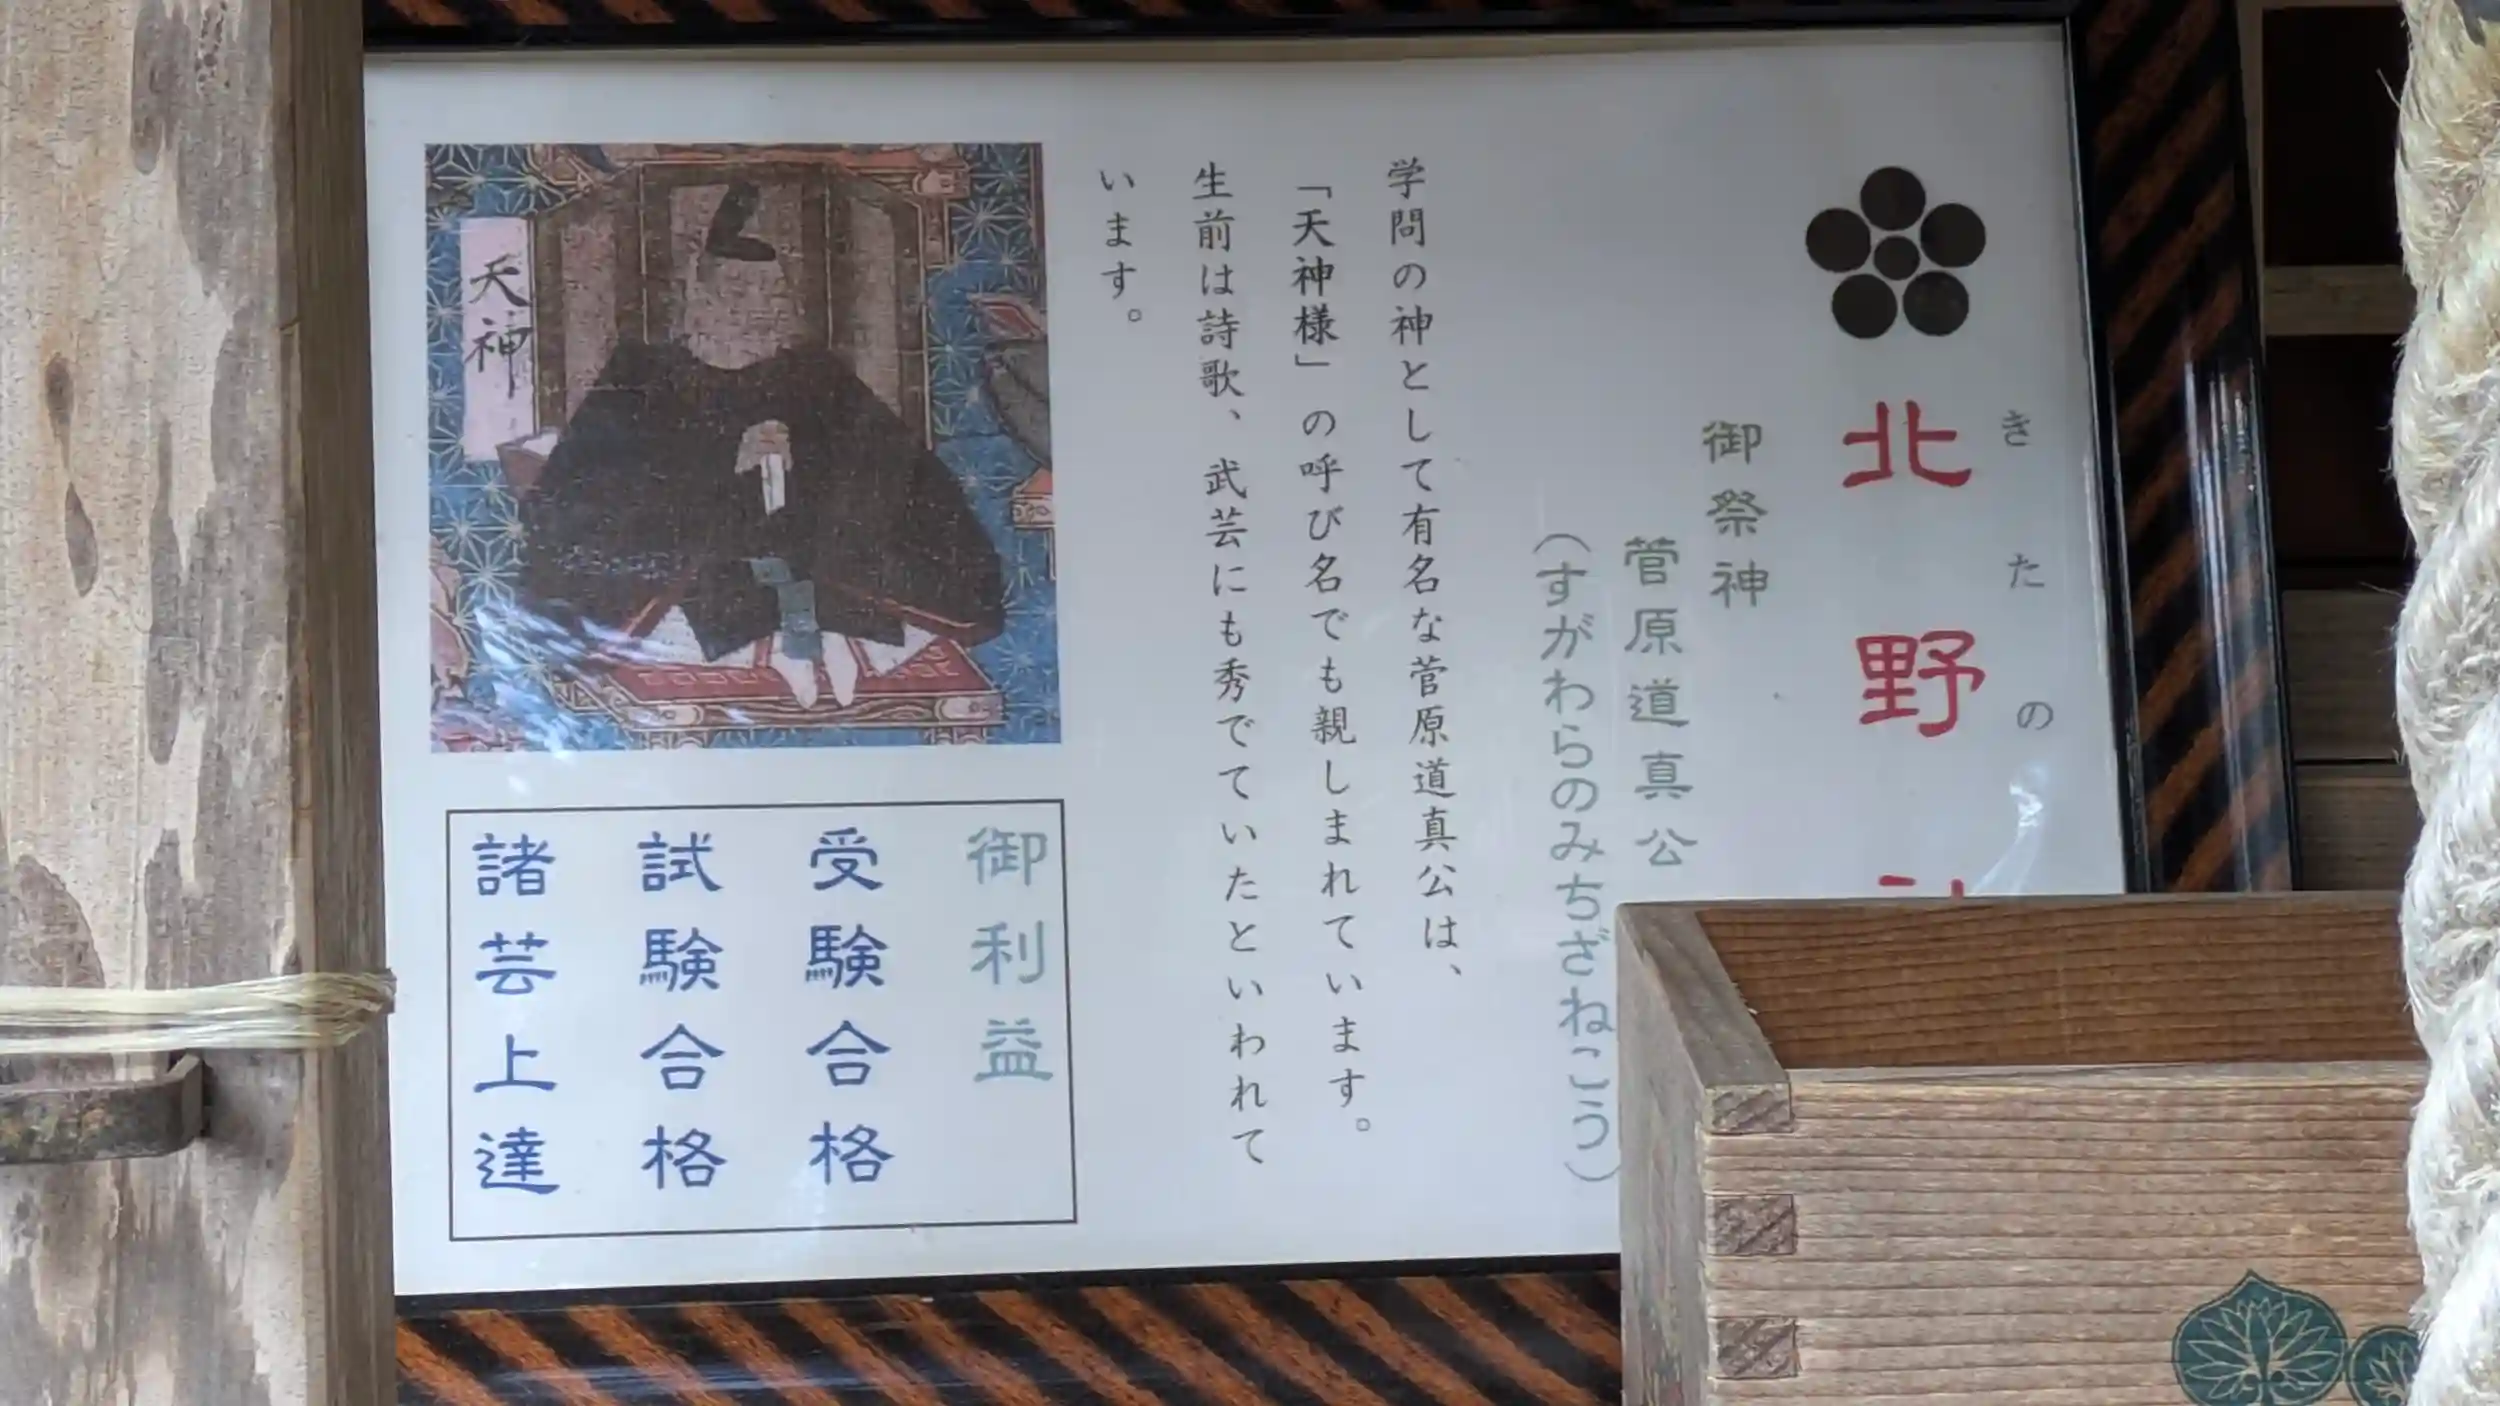 きたの
北野
御祭神
菅原道真公
（すがわらのみちざねこう）
学問の神として有名な菅原道真公は、
「天神様」の呼び名でも親しまれています。
生前は詩歌、武芸にも秀でていたといわれて
います。
天神
御利益
受験合格
試験合格
諸芸上達